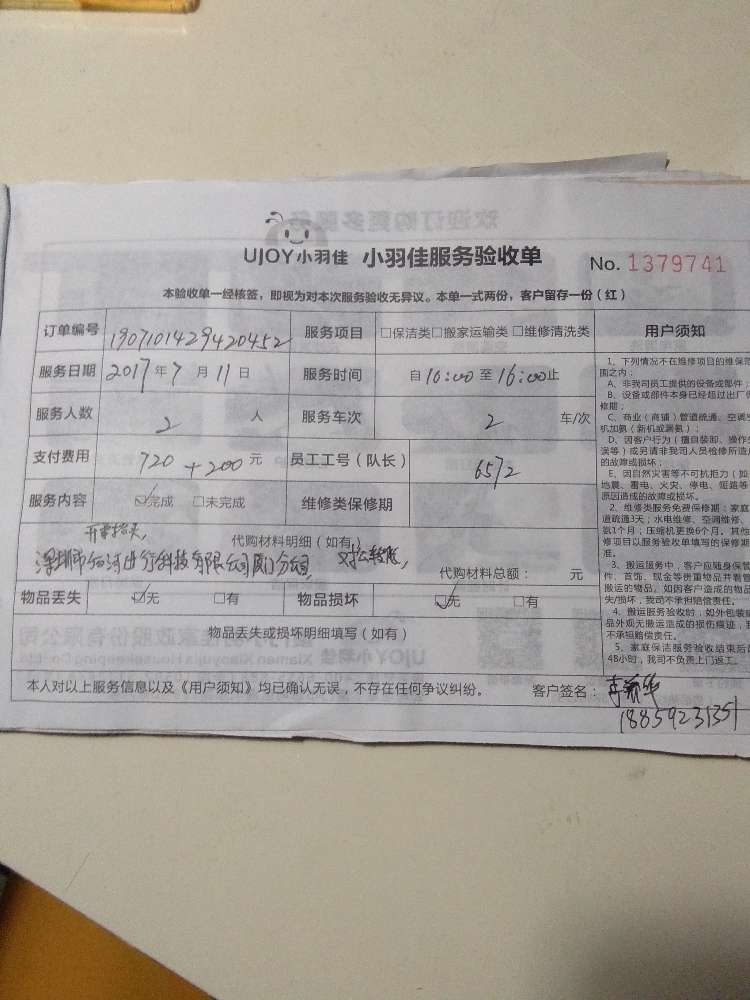 UJOY小羽佳 小羽佳服务验收单 No. 1379741
本验收单一经核签，即视为对本次服务验收无异议。本单一式两份，客户留存一份（红）
订单编号 190710142942045２ 服务项目 □保洁类□搬家运输类 □维修清洗类
服务日期 2017年7月11日 服务时间 自16:00至16:00止
服务人数 2 人 服务车次 2 车/次
支付费用 720+200 元 员工工号（队长） 6572
服务内容 ☑完成 □未完成 维修类保修期
开票抬头，
代购材料明细（如有）
深圳市 科技有限公司厦门分公司，
代购材料总额： 元
物品丢失 ☑无 □有 物品损坏 ☑无 □有
物品丢失或损坏明细填写（如有）
本人对以上服务信息以及《用户须知》均已确认无误，不存在任何争议纠纷。 客户签名：
18859231351
用户须知
1、下列情况不在维修项目的维保范
围之内：
A、非我司员工提供的设备或部件；
B、设备或部件本身已经超过出厂保
修期；
C、商业（商铺）管道疏通、空调空
机加氨（新机或漏氨）；
D、因客户行为（擅自装卸、操作失
误等）或另请非我司人员检修所造成
的故障或损坏；
E、因自然灾害等不可抗拒力（如
地震、雷电、火灾、停电、短路等
原因造成的故障或损坏。
2、维修类服务免费保修期：家庭
道疏通3天；水电维修、空调维修、
氨1个月；压缩机更换6个月。其他
修项目以服务验收单填写的保修期
准。
3、搬运服务中，客户应随身保管
件、首饰、现金等贵重物品并看管
搬运的物品。如因客户造成的物品
失/损坏，我司不承担赔偿责任。
4、搬运服务验收时，如外包装或
品外观无搬运造成的损伤痕迹，我
不承担赔偿责任。
5、家庭保洁服务验收结束后超
48小时，我司不负责上门返工。